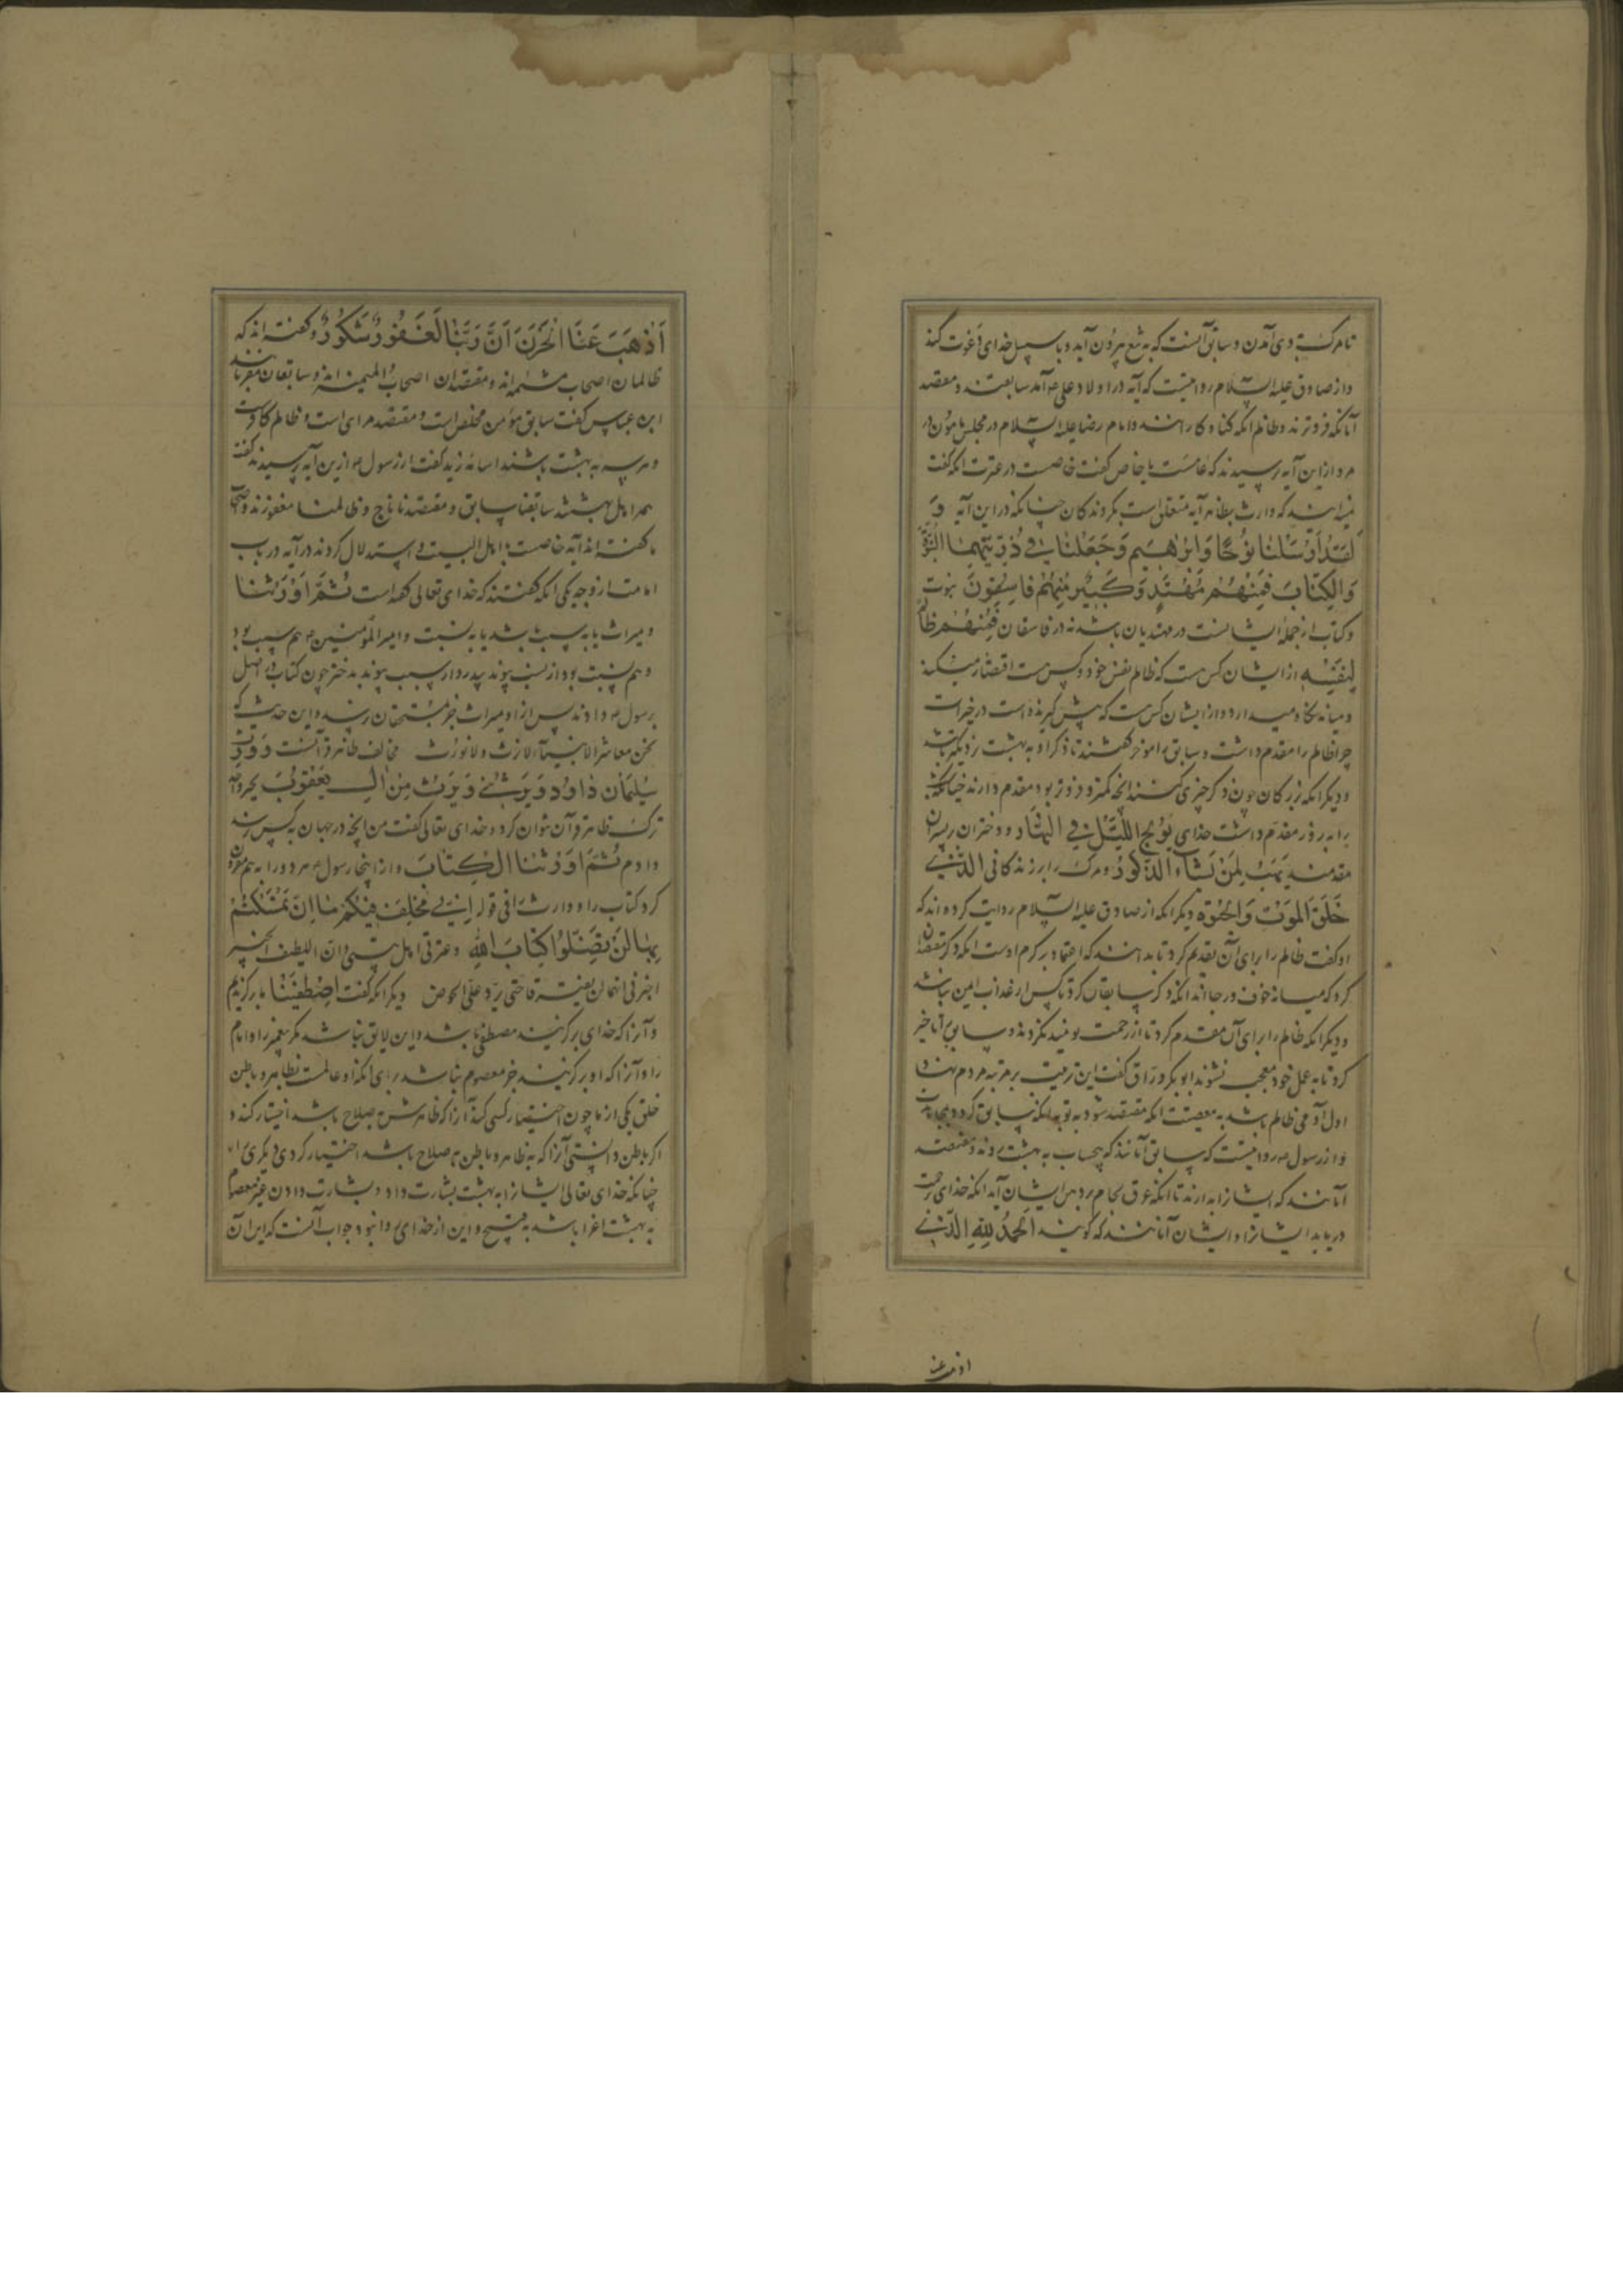 تا مرگ بدی آمدن و سابق آنست که به تیغ بیرون آید و با سبیل خدای دعوت کند
و از صادق علیه السلام روایتست که آیه در اولاد علی ص آمد سابقند و مقتصد
آنانکه فروترند و ظالم انکه کناه کارانند و امام رضا علیه السلام در مجلس مأمون در
مرو از این آیه پرسیدند که عامست یا خاص کفت خاصست در عترت انکه کفت
که وارث بظاهر آیه متعلق است بکروندکان چنانکه در این آیه وَ
لَقَدْ أَرْسَلْنَا نُوحًا وَابْرٰهِيمَ وَجَعَلْنَا فِي ذُرِّيَّتِهِمَا النُّبُوَّةَ
وَالْكِتَابَ فَمِنْهُمْ مُهْتَدٍ وَكَثِيرٌ مِنْهُمْ فَاسِقُونَ نبوت
و کتاب از جمله ایشانست در مهتدیان باشد نه در فاسقان فَمِنْهُمْ ظَالِمٌ
لِنَفْسِهِ از ایشان کس هست که ظالم نفس خود و کس هست اقتصار میکند
و میانه نکاه میدارد و از ایشان کس هست که پیش کیرنده است در خیرات
چرا ظالم را مقدم داشت و سابق را موخر کفتند تا ذکر او به بهشت نزدیکتر باشد
و دیکر انکه بزرکان چون ذکر چیزی کنند انچه کمتر و فروتر بود مقدم دارند چنانکه شب
را به روز مقدم داشت خدای يُولِجُ اللَّيْلَ فِي النَّهَارِ و دختران بر پسران
مقدمند يَهَبُ لِمَنْ يَشَاءُ الذُّكُورَ و مرک را بر زندکانی الَّذِي
خَلَقَ الْمَوْتَ وَالْحَيٰوةَ دیکر انکه از صادق علیه السلام روایت کرده اند که
او کفت ظالم را برای آن تقدیم کرد تا بدانند که اعتماد بر کرم اوست انکه ذکر مقتصدان
کرد که میانه خوف و رجااند انکه ذکر سابقان کرد تا کس از عذاب ایمن نباشد
و دیکر انکه ظالم را برای آن مقدم کرد تا از رحمت نومید نکردند و سابق را تاخیر
کرد تا به عمل خود معجب نشوند ابو بکر وراق کفت این ترتیب بر مرتبه مردم نهاد
اول آدمی ظالم باشد به معصیت انکه مقتصد شود به توبه انکه سابق کردد
و از رسول ص روایتست که سابق آنانند که بیحساب به بهشت روند و مقتصد
آنانند که ایشانرا بدارند تا انکه عرق لجام بر دهن ایشان آید انکه خدای برحمت
دریابد ایشانرا و ایشان آنانند که کویند الْحَمْدُ لِلَّهِ الَّذِي
اذهب عنا
اَذْهَبَ عَنَّا الْحَزَنَ اِنَّ رَبَّنَا لَغَفُورٌ شَكُورٌ و کفته اند که
ظالمان اصحاب مشئمه اند و مقتصدان اصحاب المیمنه اند و سابقان مقربانند
ابن عباس کفت سابق مؤمن مخلص است و مقتصد مرایی است و ظالم کافرست
و هر سه به بهشت باشند اسامه زید کفت از رسول ص ازین آیه پرسیدند کفت
همه اهل بهشتند سابقنا سابق و مقتصدنا ناج و ظالمنا مغفور
ما کفته اند آیه خاصست باهل البیت و استدلال کردند در آیه در باب
امامت از وجه یکی انکه کفتند که خدای تعالی کفته است ثُمَّ اَوْرَثْنَا
و میراث یا به سبب باشد یا به نسبت و امیر المؤمنین ص هم سبب بود
و هم نسبت بود از نسب پیوند پدر دارد سبب پیوند به دختر چون کتاب
رسول ص دادند پس از او میراث جز بمستحقان رسد و این حدیث که
نحن معاشر الانبیاء لا نرث و لا نورث مخالف ظاهر قرآنست وَوَرِثَ
سُلَيْمَانُ دَاوُدَ وَيَرِثُنِي وَيَرِثُ مِنْ آلِ يَعْقُوبَ
ترک ظاهر قرآن نتوان کرد و خدای تعالی کفت من انچه در جهان به کس رسد
دادم ثُمَّ اَوْرَثْنَا الْكِتَابَ و از اینجا رسول ص هر دو را به هم مقرون
کرد کتاب را و وارث را فی قوله اِنِّي مُخْلِفٌ فِيكُمْ مَا اِنْ تَمَسَّكْتُمْ
بِهِمَا لَنْ تَضِلُّوا كِتَابَ اللهِ و عترتی اهل بیتی و ان اللطیف الخبیر
اخبرنی انهما لن یفترقا حتی یردا علی الحوض دیکر انکه کفت اصْطَفَيْنَا ما برکزیدیم
و آنرا که خدای برکزیند مصطفی باشد و این لایق نباشد مکر پیغمبر را و امام
را و آنرا که او برکزیند جز معصوم نباشد برای انکه او عالمست بظاهر و باطن
خلق یکی از ما چون اختیار کسی کند آنرا که ظاهرش بصلاح باشد اختیار کند و
اکر باطن دانستی آنرا که به ظاهر و باطن بصلاح باشد اختیار کردی دیکری
چنانکه خدای تعالی ایشانرا به بهشت بشارت داد و بشارت دادن غیر معصوم
به بهشت اغرا باشد به قبیح و این از خدای روا نبود جواب آنست که این آن